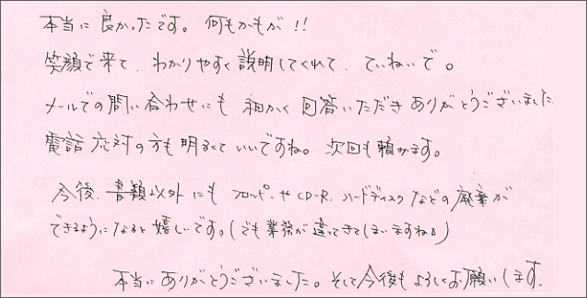 本当に良かったです。何もかもが!!
笑顔で来て、わかりやすく説明してくれて、ていねいで。
メールでの問い合わせにも細かく回答いただきありがとうございました
電話応対の方も明るくていいですね。次回も頼みます。
今後、書類以外にもフロッピーやCD-R、ハードディスクなどの廃棄が
できるようになると嬉しいです。(でも業務が違ってきてしまいますね)
本当にありがとうございました。そして今後もよろしくお願いします。